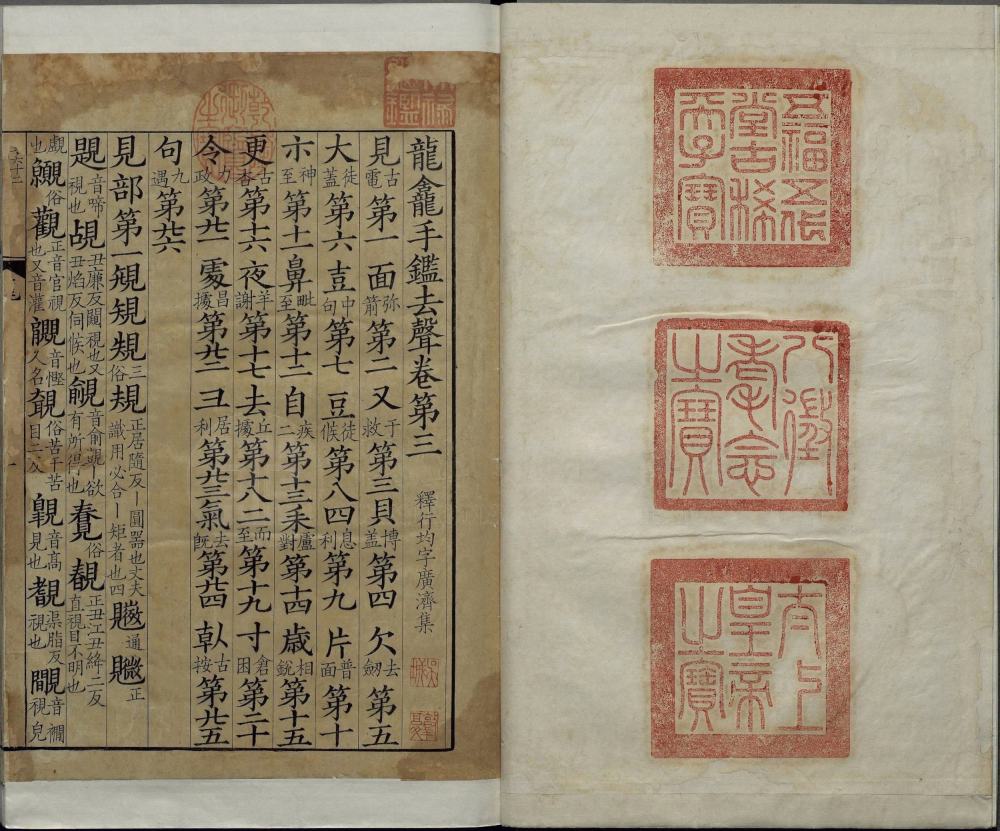 五福五代
堂古稀
天子寶
八徵
耄念
之寶
太上
皇帝
之寶
龍龕手鑑去聲卷第三 釋行均字廣濟集
見古電第一面弥箭第二又于救第三貝博盖第四欠去劒第五
大徒盖第六壴中句第七豆徒候第八四息利第九片普面第十
示神至第十一鼻毗至第十二自疾二第十三耒盧對第十四歲相銳第十五
更古第十六夜羊謝第十七去丘據第十八二而至第十九寸倉困第二十
令力政第廿一處昌據第廿二彑居利第廿三氣去旣第廿四倝古按第廿五
句九遇第廿六
見部第一規三俗規正居隨反丨圓器也丈夫識用必合丨矩者也四通正
題音啼視也覘丑廉反闚視也又丑焰反伺候也覦音俞覬覦欲有所得也俗覩正丑江丑絳二反直視目不明也
覰也俗觀正音官視也又音灌音慳人名俗苦干苦目二反音髙見也渠脂反視也音襉視皃